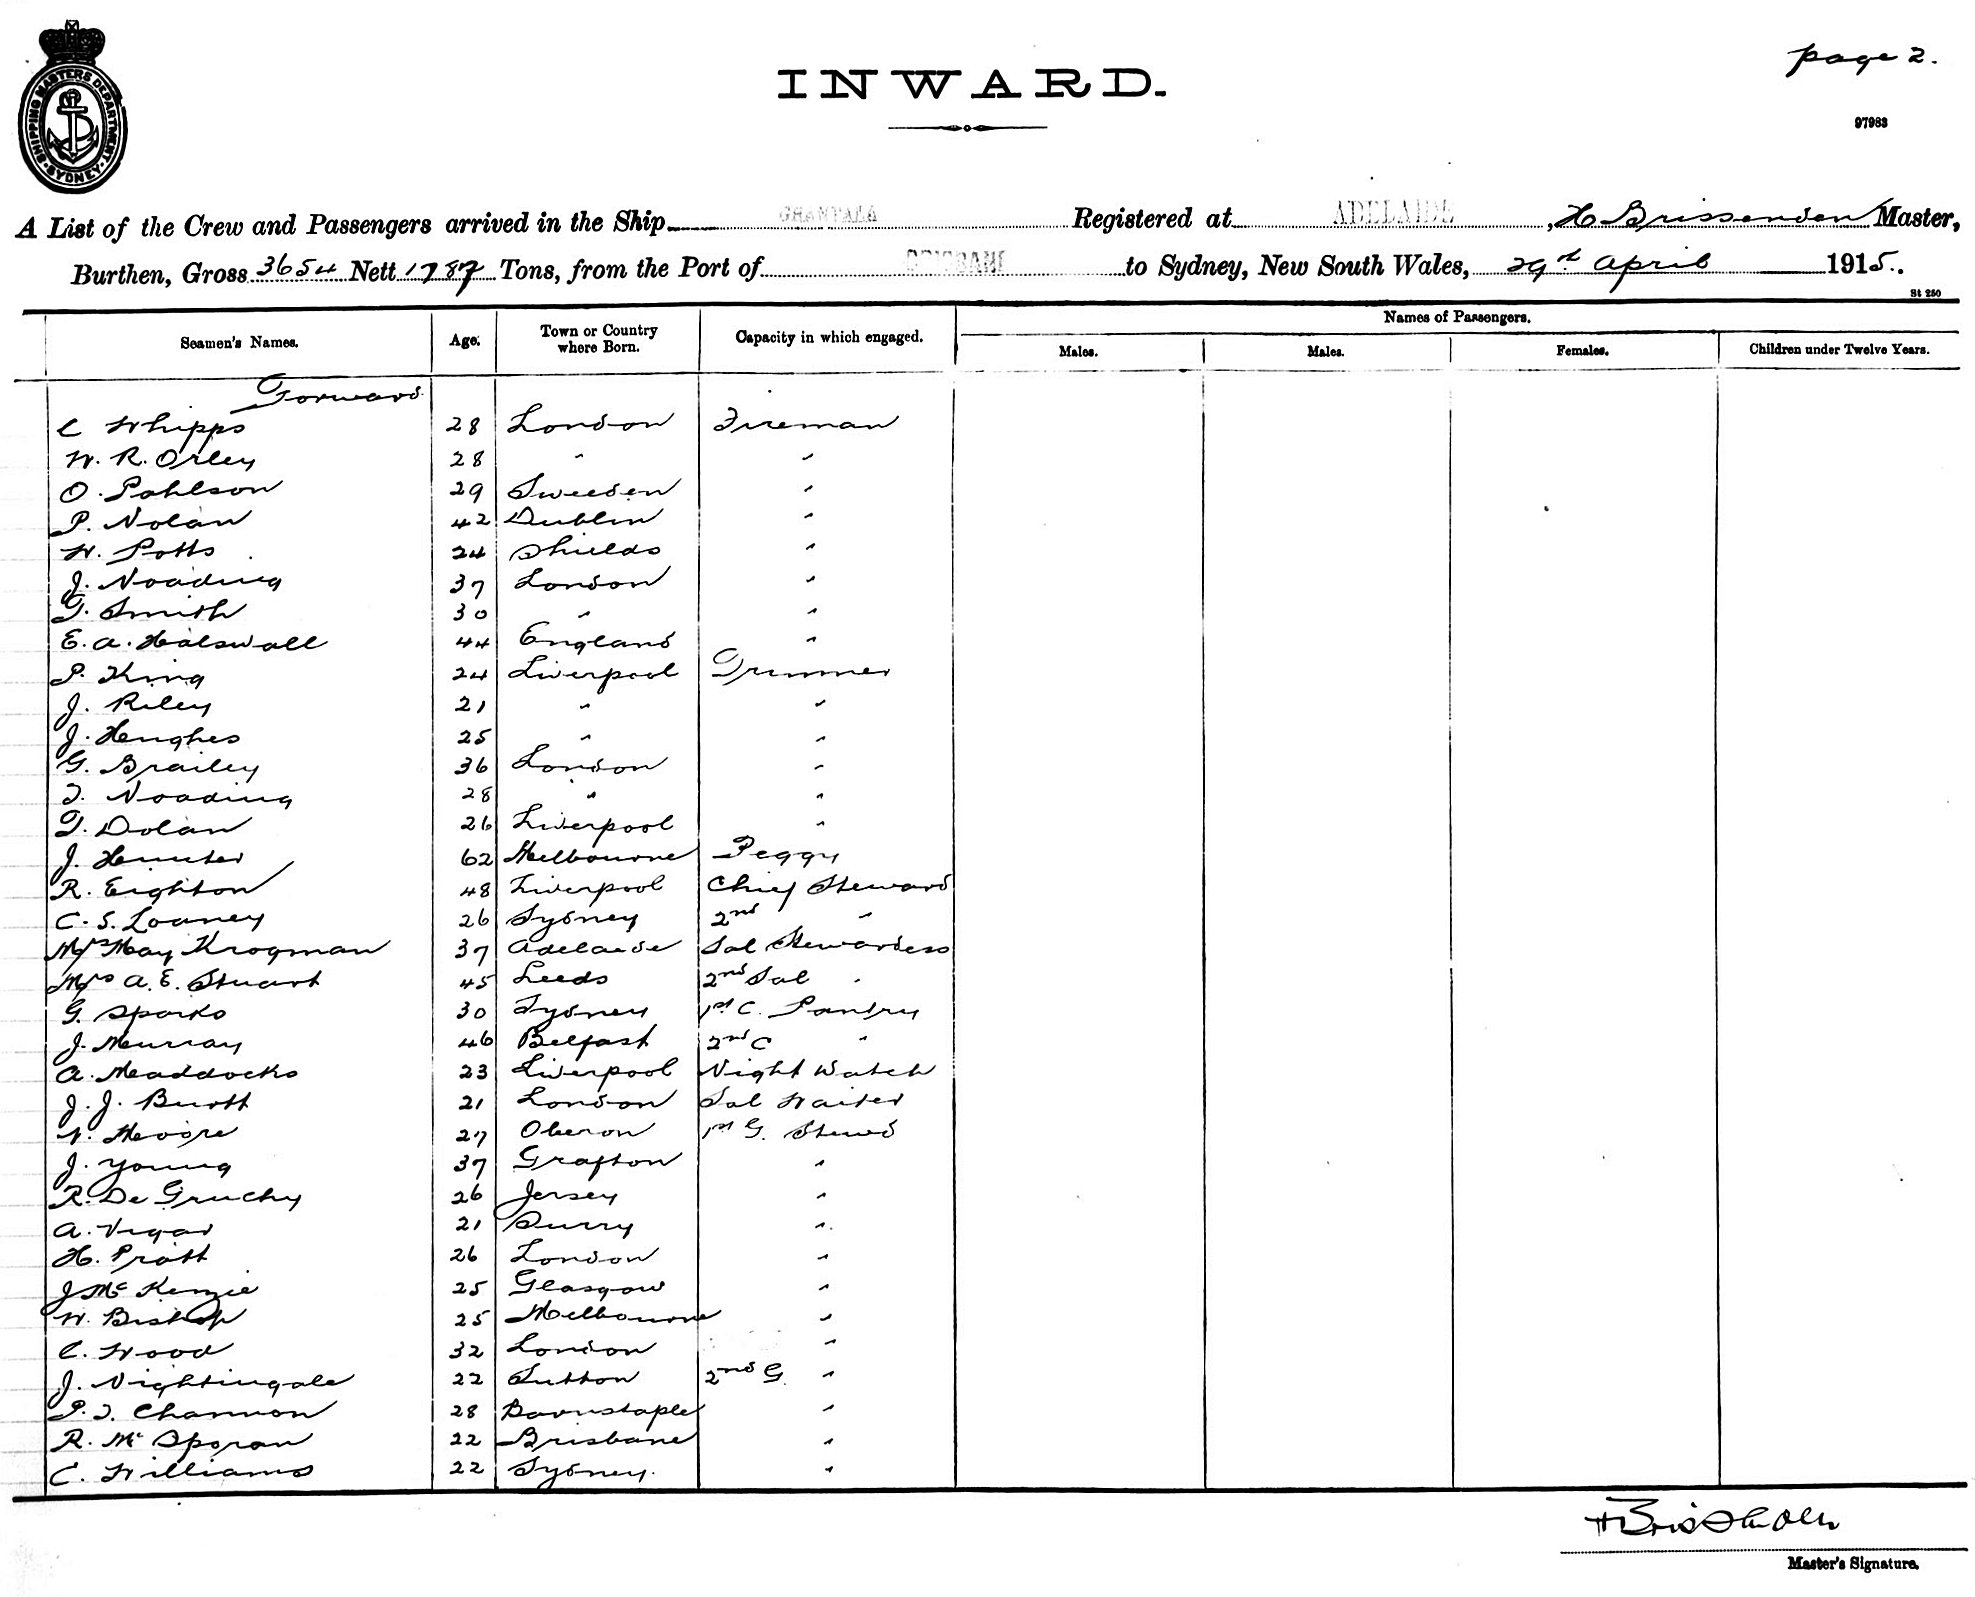 page 2.
INWARD.
97983
SHIPPING MASTERS DEPARTMENT SYDNEY
A List of the Crew and Passengers arrived in the Ship GRANTALA Registered at ADELAIDE, H Brissenden Master,
Burthen, Gross 3654 Nett 1787 Tons, from the Port of BRISBANE to Sydney, New South Wales, 29th April 1915.
St 250
Seamen's Names. Age. Town or Country where Born. Capacity in which engaged. Names of Passengers.
Males. Males. Females. Children under Twelve Years.
Forward
C Whipps 28 London Fireman
W. R. Orley 28 " "
O. Pahlson 29 Sweeden "
P. Nolan 42 Dublin "
W. Potts 24 Shields "
J. Noading 37 London "
G. Smith 30 " "
E. A. Halswall 44 England "
P. King 24 Liverpool Trimmer
J. Riley 21 " "
J. Hughes 25 " "
G. Brailey 36 London "
T. Noading 28 " "
T. Dolan 26 Liverpool "
J. Hunter 62 Melbourne Peggy
R. Eighton 48 Liverpool Chief Steward
C. S. Looney 26 Sydney 2nd "
Mrs May Krogman 37 Adelaide Sal Stewardess
Mrs A. E. Stuart 45 Leeds 2nd Sal "
G. Sparks 30 Sydney 1st C. Pantry
J. Murray 46 Belfast 2nd C "
A. Maddocks 23 Liverpool Night Watch
J. J. Burtt 21 London Sal Waiter
N. Moore 27 Oberon 1st G. Stewd
J. Young 37 Grafton "
R. De Gruchy 26 Jersey "
A. Vigar 21 Surry "
H. Pratt 26 London "
J Mc Kenzie 25 Glasgow "
W. Bishop 25 Melbourne "
C. Wood 32 London "
J. Nightingale 22 Sutton 2nd G. "
P. T. Channon 28 Barnstaple "
R. Mc Sporan 22 Brisbane "
C. Williams 22 Sydney. "
Master's Signature.